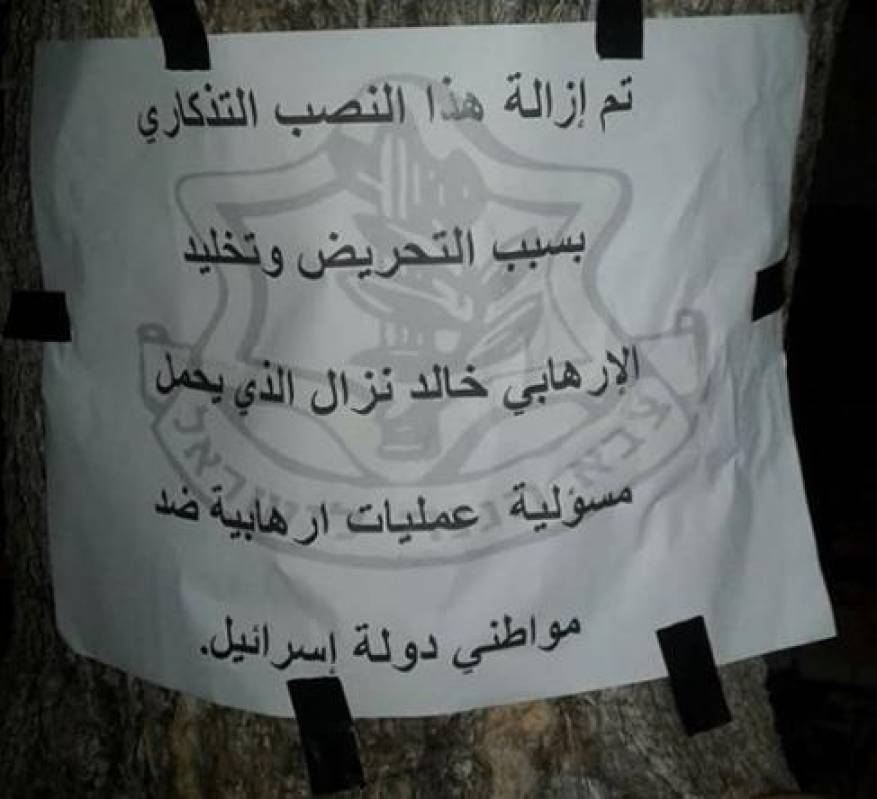 تم إزالة هذا النصب التذكاري
بسبب التحريض وتخليد
الإرهابي خالد نزال الذي يحمل
مسؤلية عمليات ارهابية ضد
مواطني دولة إسرائيل.